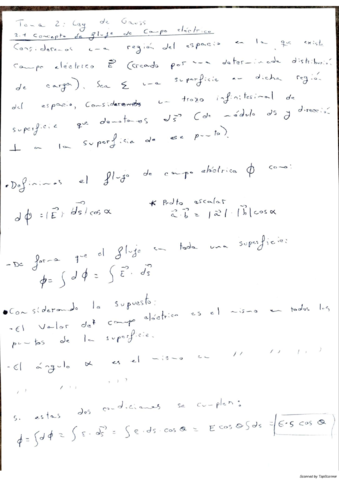 Tema 2: Ley de Gauss
2.1 Concepto de flujo de campo eléctrico
Consideremos una región del espacio en la que existe
campo eléctrico E⃗ (creado por una determinada distribu
de carga). Sea Σ una superficie en dicha región
del espacio, consideremos un trozo infinitesimal de
superficie que denotamos ds⃗ (de módulo ds y dirección
⊥ a la superficie de ese punto).
• Definimos el flujo de campo eléctrico ϕ como:
dϕ = |E⃗| · |ds⃗| cos α
* Pdto escalar
a⃗ · b⃗ = |a⃗| · |b⃗| cos α
- De forma que el flujo en toda una superficie:
ϕ = ∫ dϕ = ∫ E⃗ · ds⃗
• Considerando lo supuesto:
- El valor del campo eléctrico es el mismo en todos los
puntos de la superficie.
- El ángulo α es el mismo en " " " "
" " "
Si estas dos condiciones se cumplen:
ϕ = ∫dϕ = ∫ E · ds⃗ = ∫ E · ds cos θ = E cos θ ∫ ds = E · S cos θ
Scanned by TapScanner